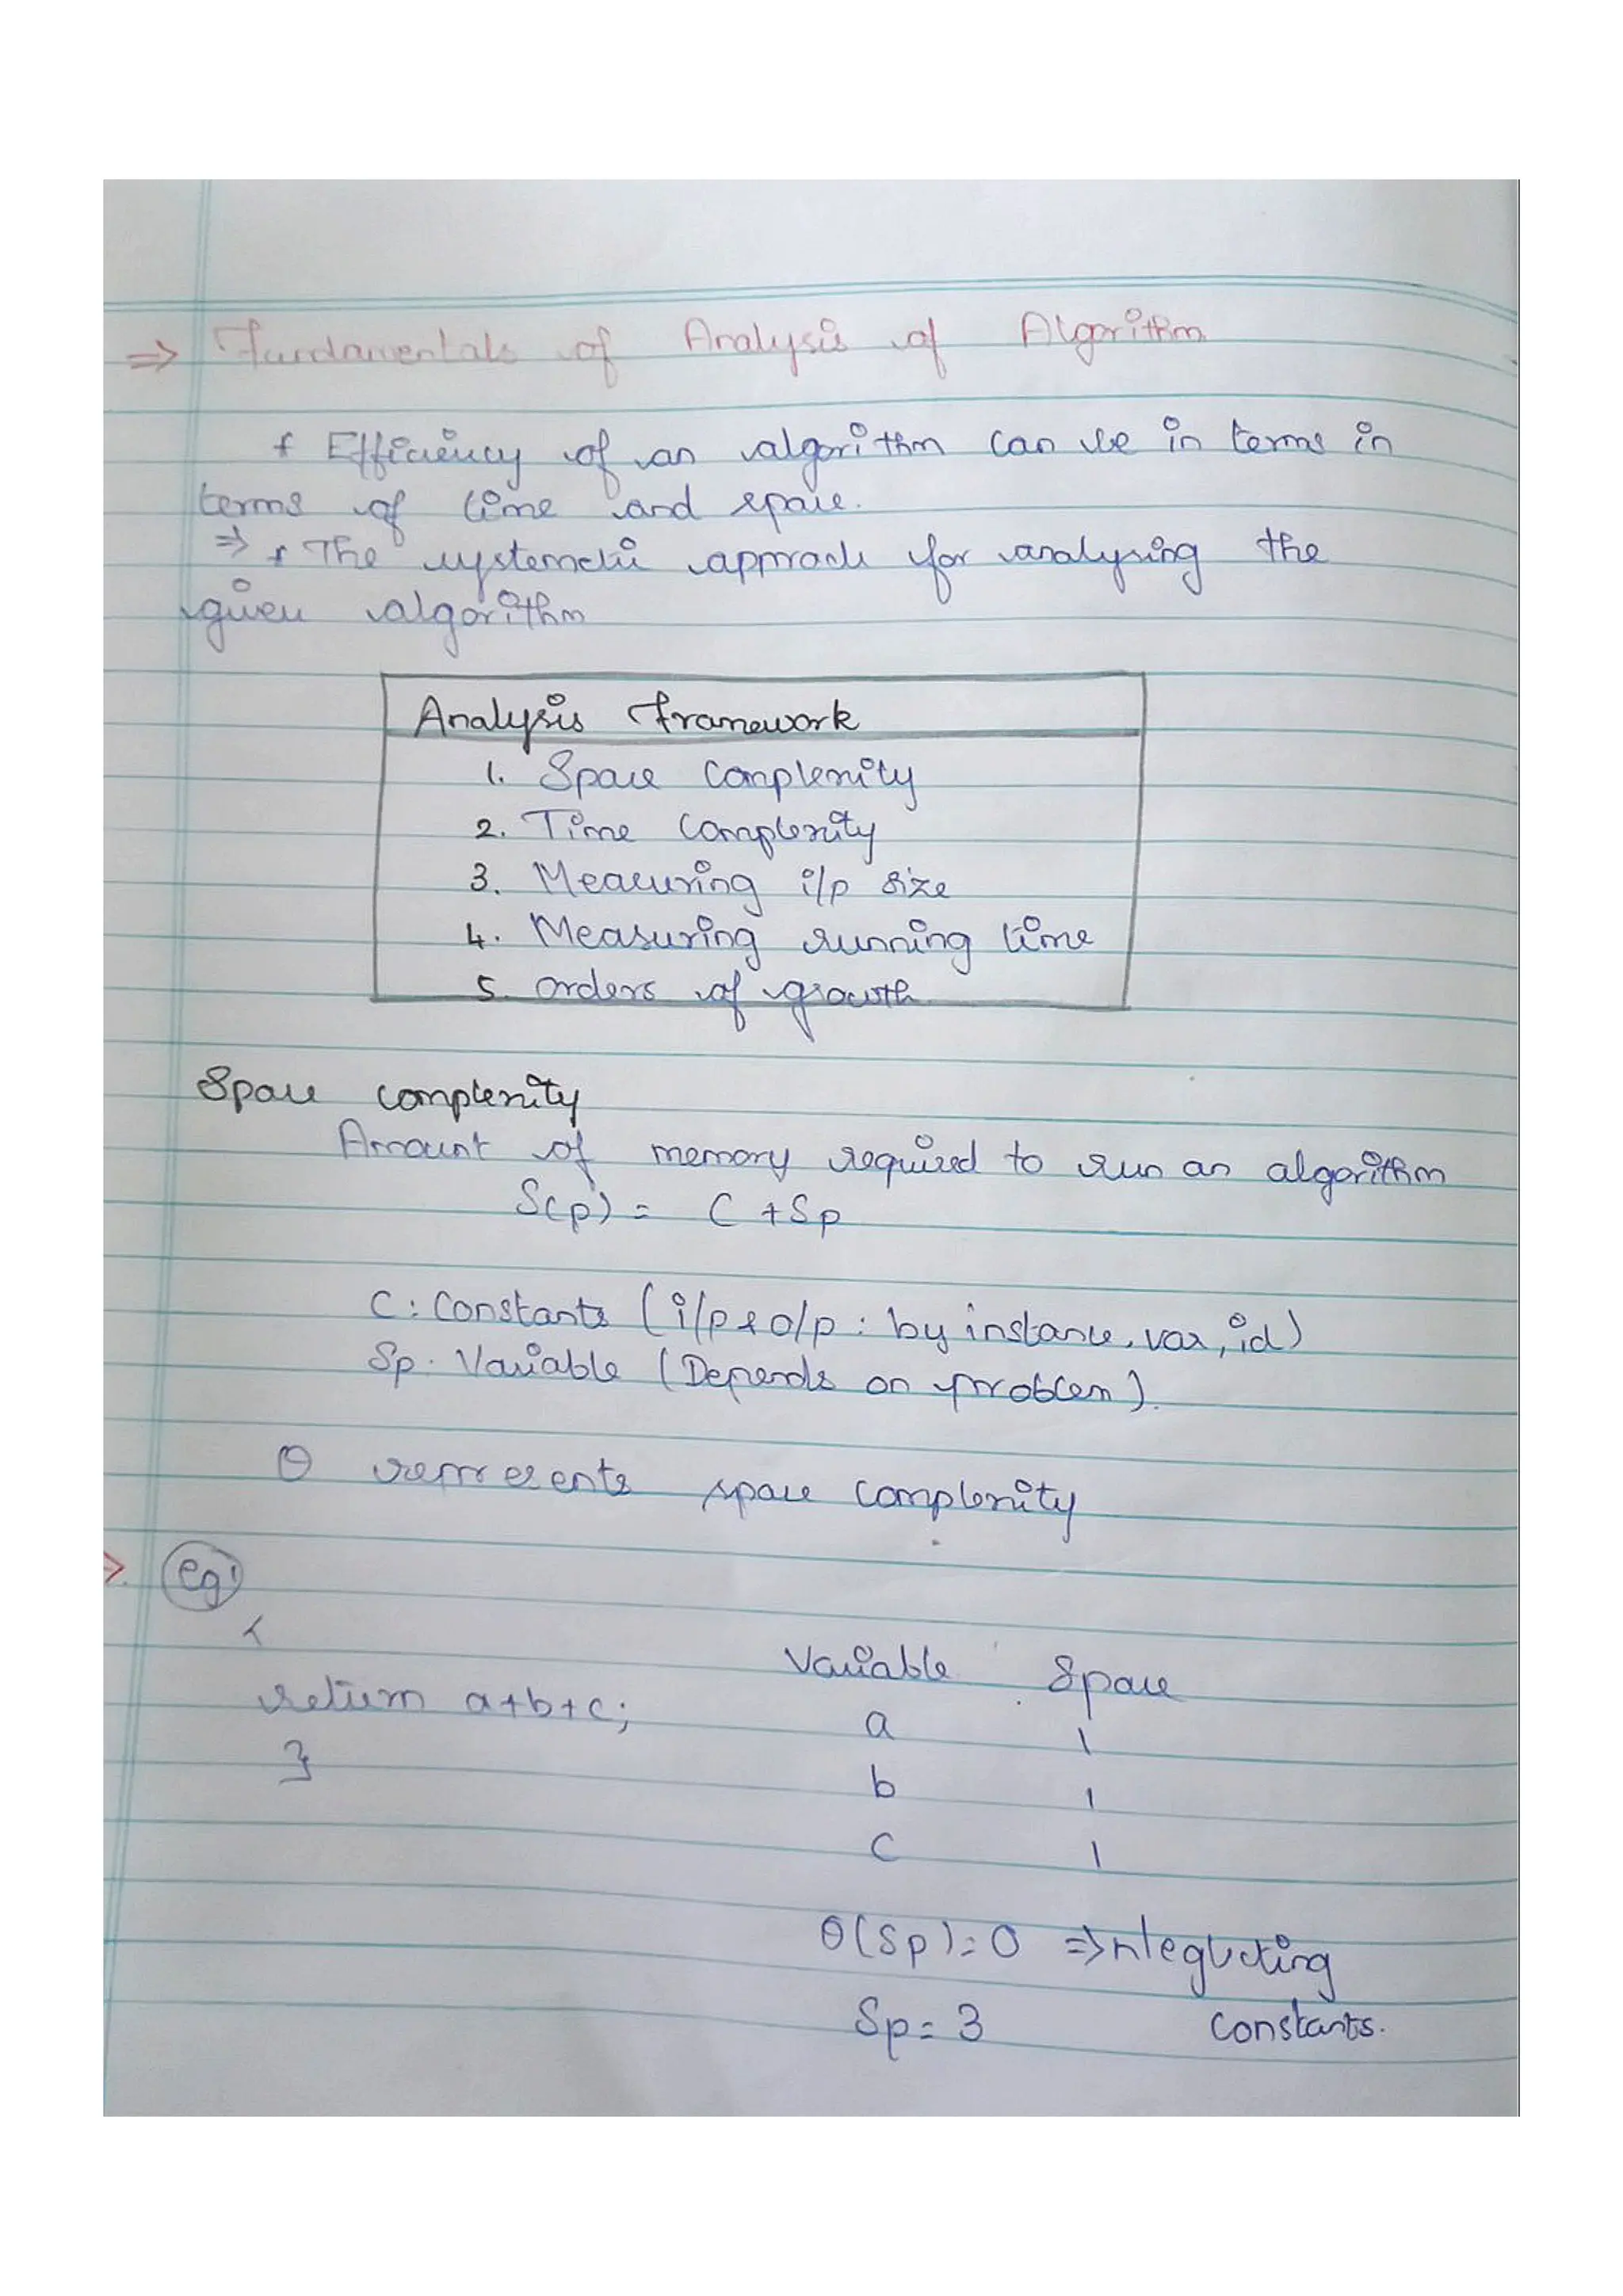 ⇒ Fundamentals of Analysis of Algorithm
* Efficiency of an algorithm can be in terms in
terms of time and space.
⇒ * The systematic approach for analysing the
given algorithm
Analysis Framework
1. Space Complexity
2. Time Complexity
3. Measuring i/p size
4. Measuring running time
5. Orders of growth
Space complexity
Amount of memory required to run an algorithm
S(p) = C + Sp
C : Constants ( i/p & o/p : by instance, var, id)
Sp : Variable (Depends on problem).
Θ represents space complexity
⇒ eg:
{
Variable Space
return a+b+c;
a 1
}
b 1
c 1
Θ(Sp) = 0 ⇒ Neglecting
Sp = 3 constants.